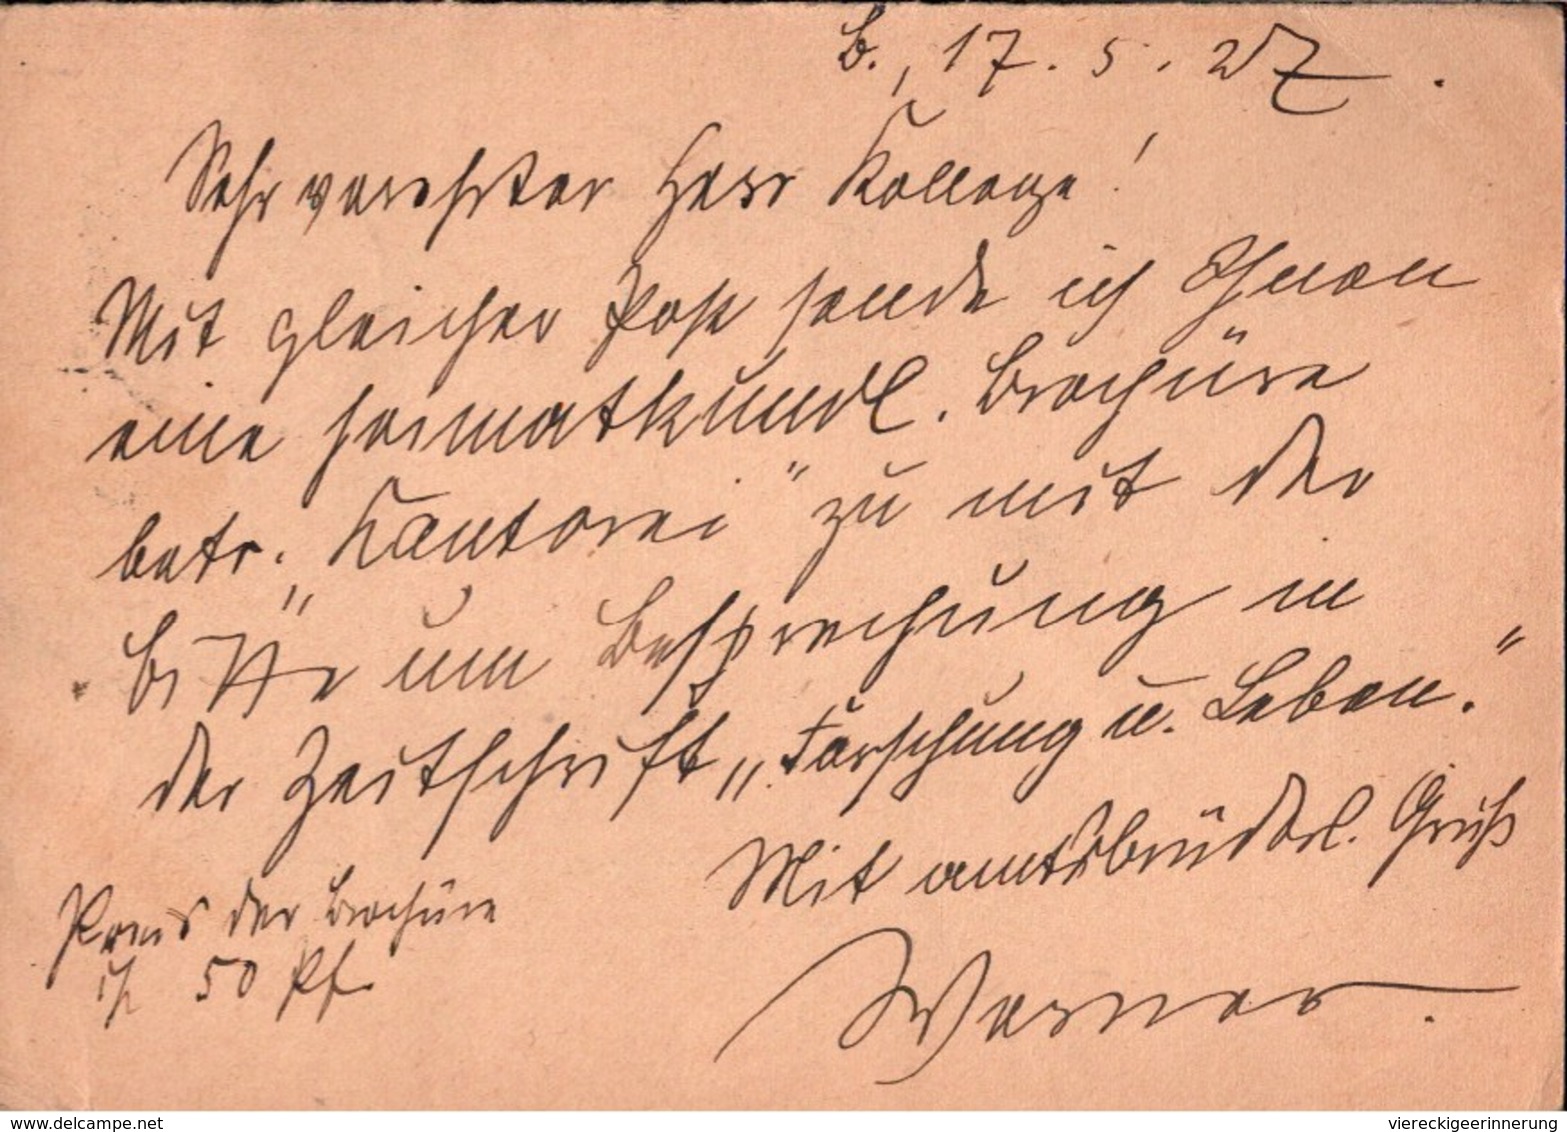 B., 17. 5. 27.
Sehr verehrter Herr Kollege!
Mit gleicher Post sende ich Ihnen
eine heimatkundl. Brochüre
betr. „Kantorei" zu mit der
Bitte um Besprechung in
der Zeitschrift „Forschung u. Leben."
Mit amtsbrüderl. Gruß
Werner.
Preis der Brochüre
ist 50 Pf.
www.delcampe.net
viereckigeerinnerung